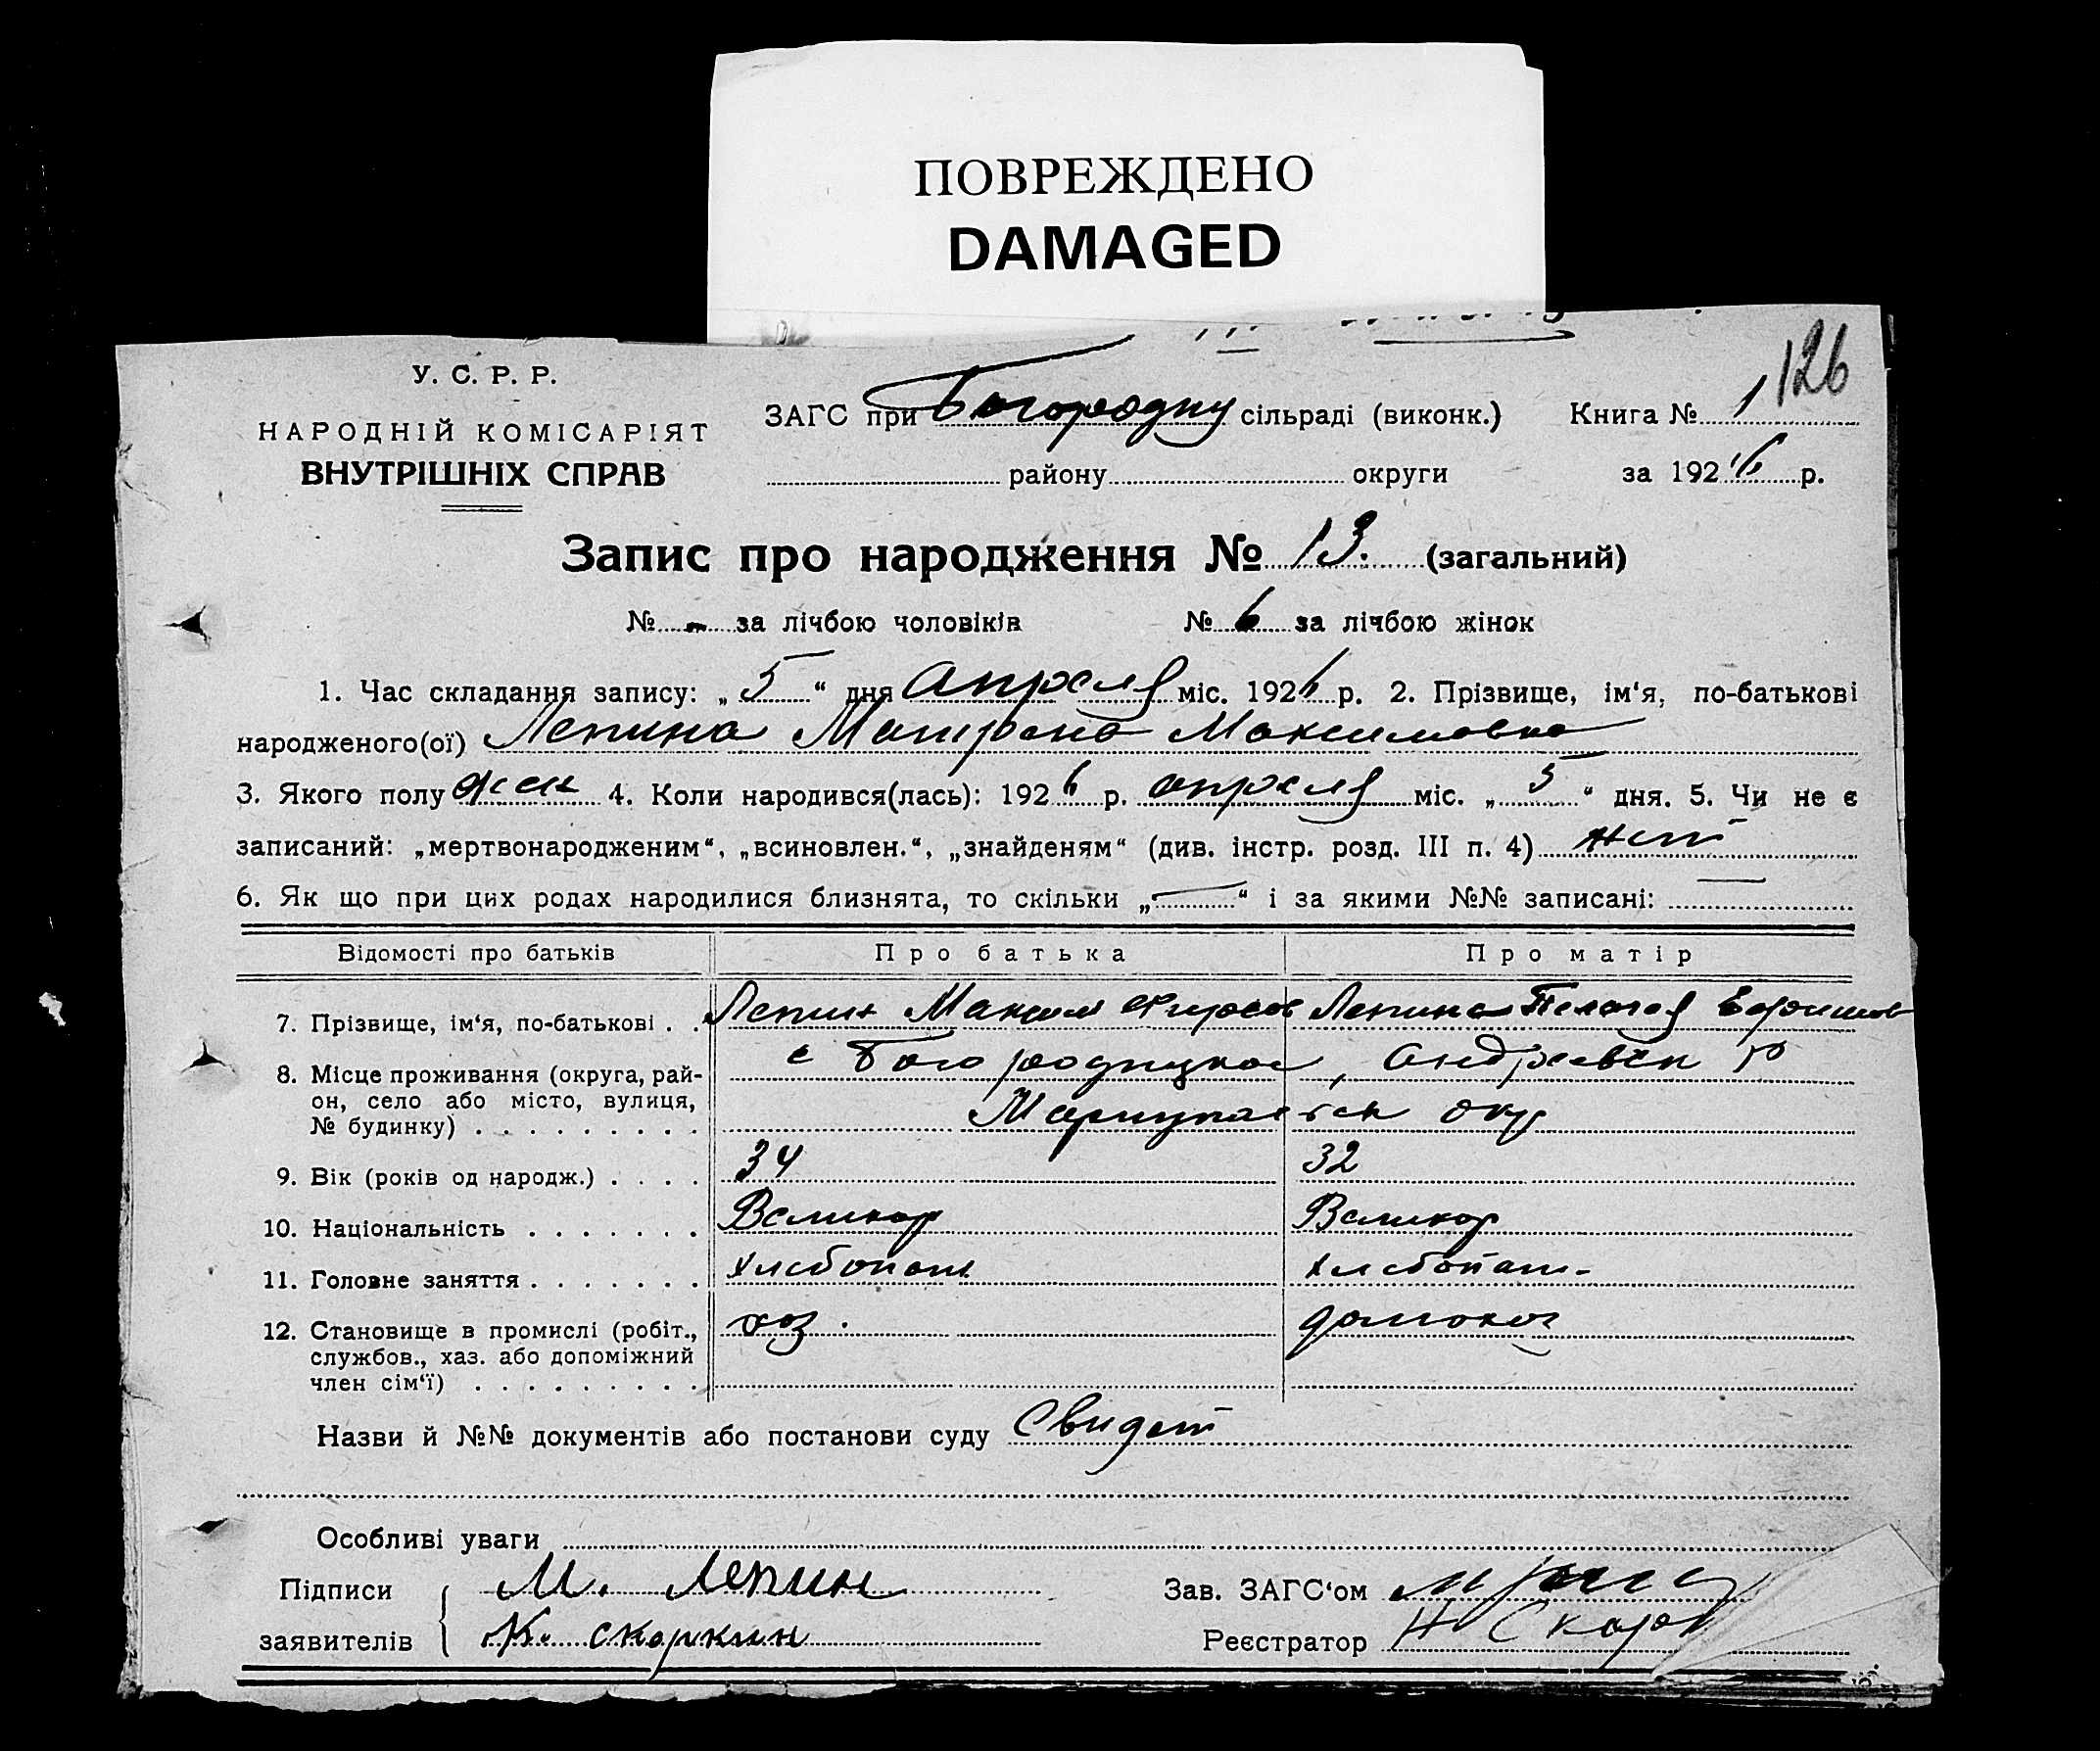 ПОВРЕЖДЕНО
DAMAGED
126
У. С. Р. Р.
НАРОДНІЙ КОМІСАРІЯТ
ВНУТРІШНІХ СПРАВ
ЗАГС при Богородиц сільраді (виконк.) Книга № 1
району округи за 1926 р.
Запис про народження № 13. (загальний)
№ - за лічбою чоловіків № 6 за лічбою жінок
1. Час складання запису: „ 5 “ дня Апреля міс. 1926 р. 2. Прізвище, ім‘я, по-батькові
народженого(ої) Лепина Матрена Максимовна
3. Якого полу жен 4. Коли народився(лась): 1926 р. апреля міс. „ 5 “ дня. 5. Чи не є
записаний: „мертвонародженим“, „всиновлен.“, „знайденям“ (див. інстр. розд. III п. 4) нет
6. Як що при цих родах народилися близнята, то скільки „ — “ і за якими №№ записані: —
Відомості про батьків Про батька Про матір
7. Прізвище, ім‘я, по-батькові . . Лепин Максим Фирсов Лепина Пелагея
8. Місце проживання (округа, рай- с Богородицкое, Андреевск р
он, село або місто, вулиця, Мариупольск окр
№ будинку) . . . . . . . . .
9. Вік (років од народж.) . . . . 34 32
10. Національність . . . . . . . Великор Великор
11. Головне заняття . . . . . . . Хлебопаш Хлебопаш-
12. Становище в промислі (робіт., хоз. домохоз
службов., хаз. або допоміжний
член сім‘ї) . . . . . . . . .
Назви й №№ документів або постанови суду Свидет
Особливі уваги
Підписи М. Лепин Зав. ЗАГС‘ом
заявителів К. скоркин Реєстратор Н Скор